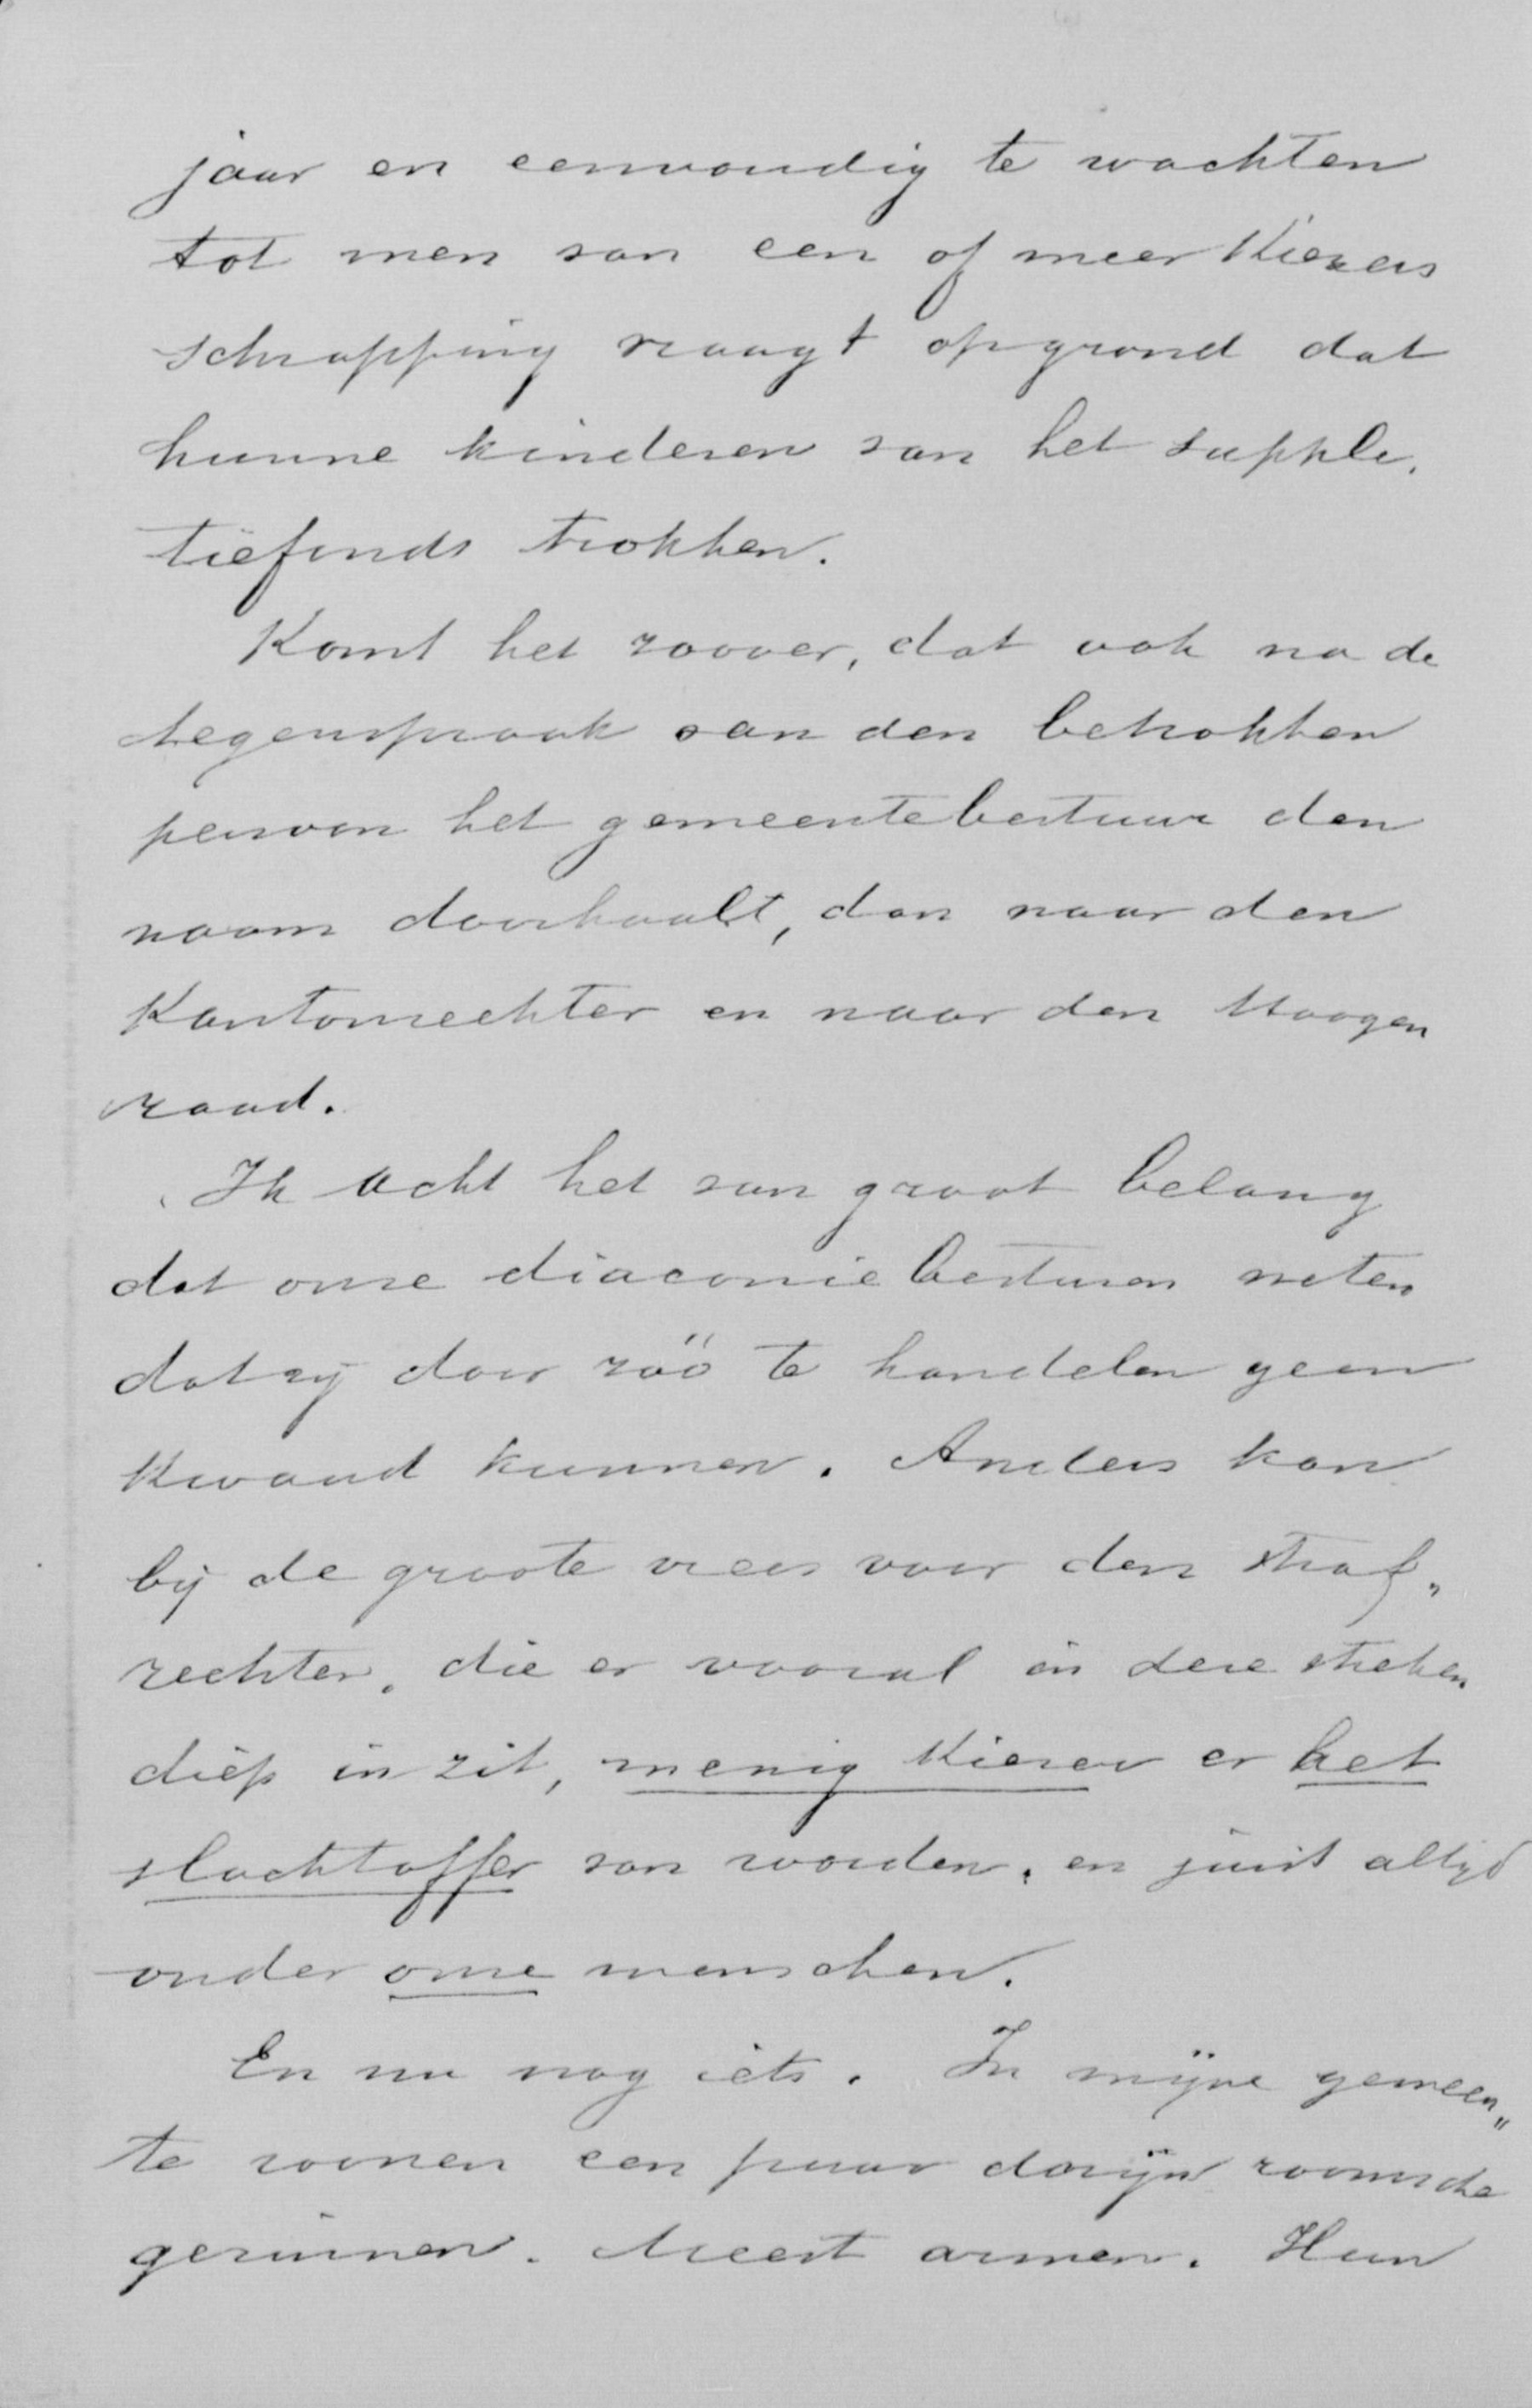 jaar en eenvoudig te wachten
tot men van een of meer kiezers
schrapping vraagt op grond dat
hunne kinderen van het supple,
tiefonds trokken.
Komt het zoover, dat ook na de
tegenspraak van den betrokken
persoon het gemeentebestuur den
naam doorhaalt, dan naar den
Kantonrechter en naar den Hoogen
raad.
Ik acht het van groot belang
dat onze diaconiebesturen weten
dat zij door zóó te handelen geen
kwaad kunnen. Anders kan
bij de groote vrees voor den straf„
rechter, die er vooral in deze streken
diep in zit, menig kiezer er het
slachtoffer van worden, en juist altijd
onder onze menschen.
En nu nog iets. In mijne gemeen„
te wonen een paar dozijn roomsche
gezinnen. Meest armen. Hun